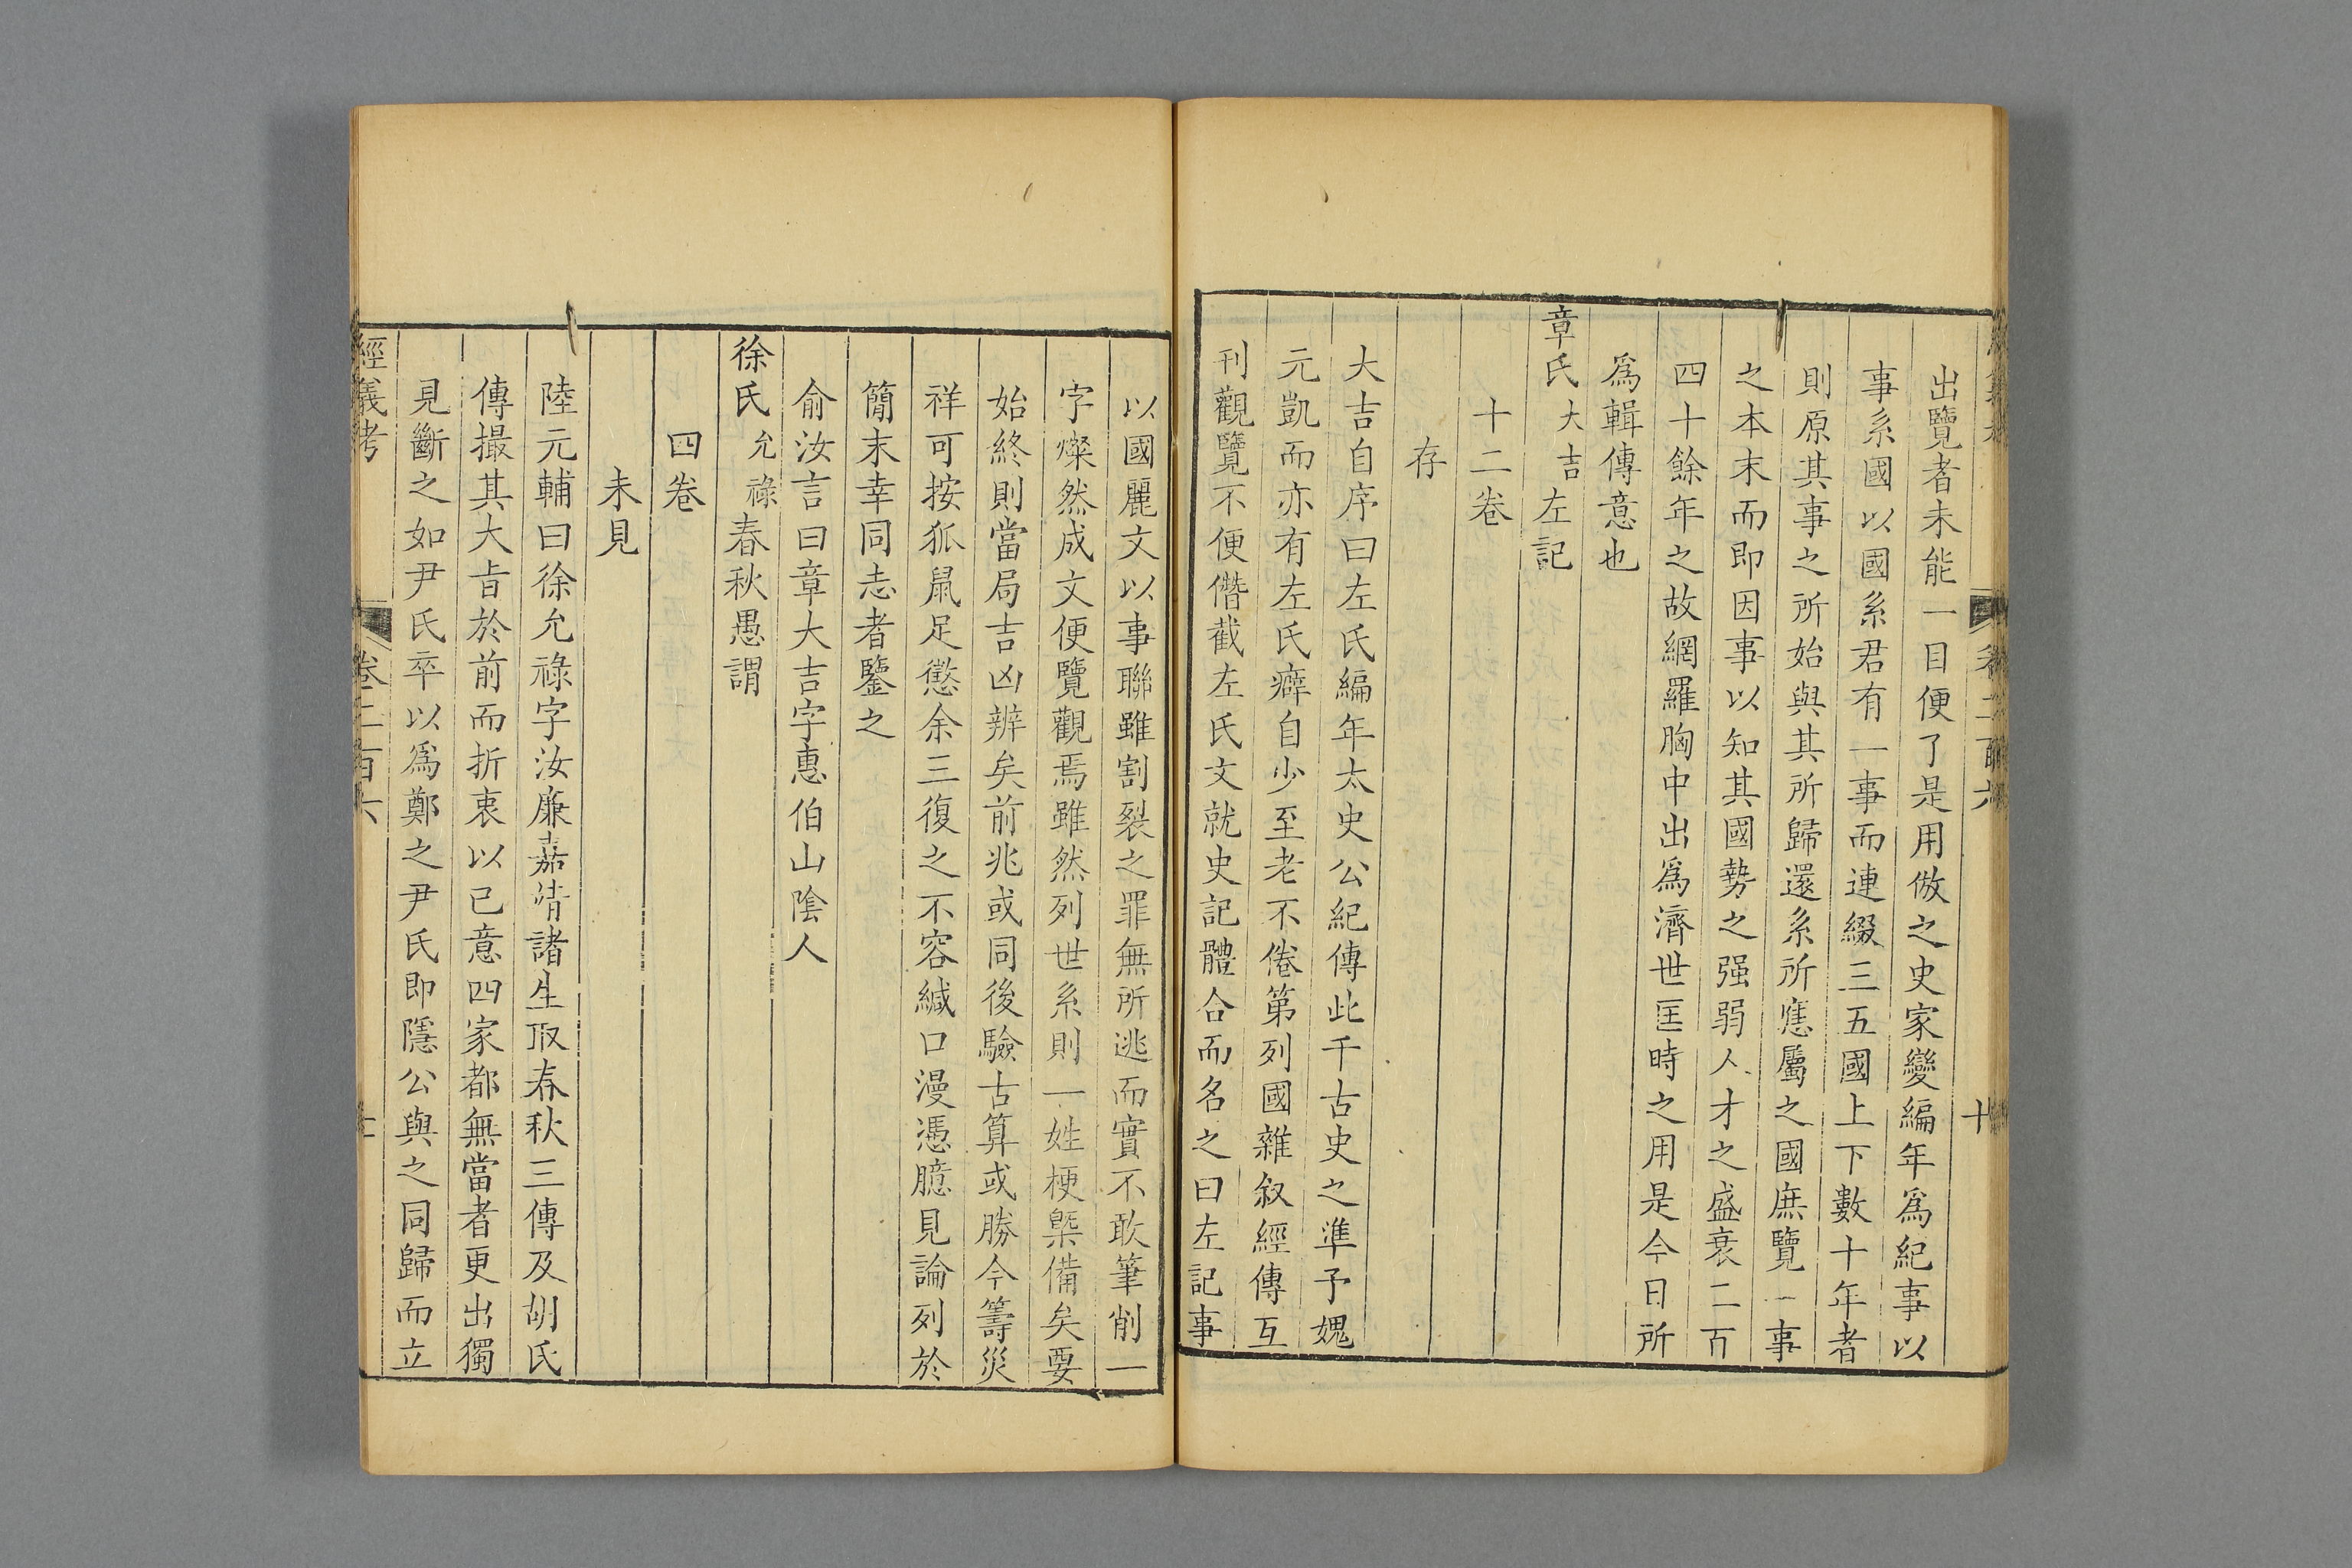 出覽者未能一目便了是用倣之史家變編年爲紀事以
事系國以國系君有一事而連綴三五國上下數十年者
則原其事之所始與其所歸還系所應屬之國庶覽一事
之本末而即因事以知其國勢之强弱人才之盛衰二百
四十餘年之故網羅胸中出爲濟世匡時之用是今日所
爲輯傳意也
章氏大吉左記
十二卷
存
大吉自序曰左氏編年太史公紀傳此千古史之準予媿
元凱而亦有左氏癖自少至老不倦第列國雜叙經傳互
刊觀覽不便僭截左氏文就史記體合而名之曰左記事
以國麗文以事聯雖割裂之罪無所逃而實不敢筆削一
字燦然成文便覽觀焉雖然列世系則一姓梗槩備矣要
始終則當局吉凶辨矣前兆或同後驗古算或勝今籌災
祥可按狐鼠足懲余三復之不容緘口漫憑臆見論列於
簡末幸同志者鑒之
俞汝言曰章大吉字惠伯山陰人
徐氏允祿春秋愚謂
四卷
未見
陸元輔曰徐允祿字汝廉嘉淸諸生取春秋三傳及胡氏
傳撮其大旨於前而折衷以已意四家都無當者更出獨
見斷之如尹氏卒以爲鄭之尹氏即隱公與之同歸而立
經義考
卷二百六